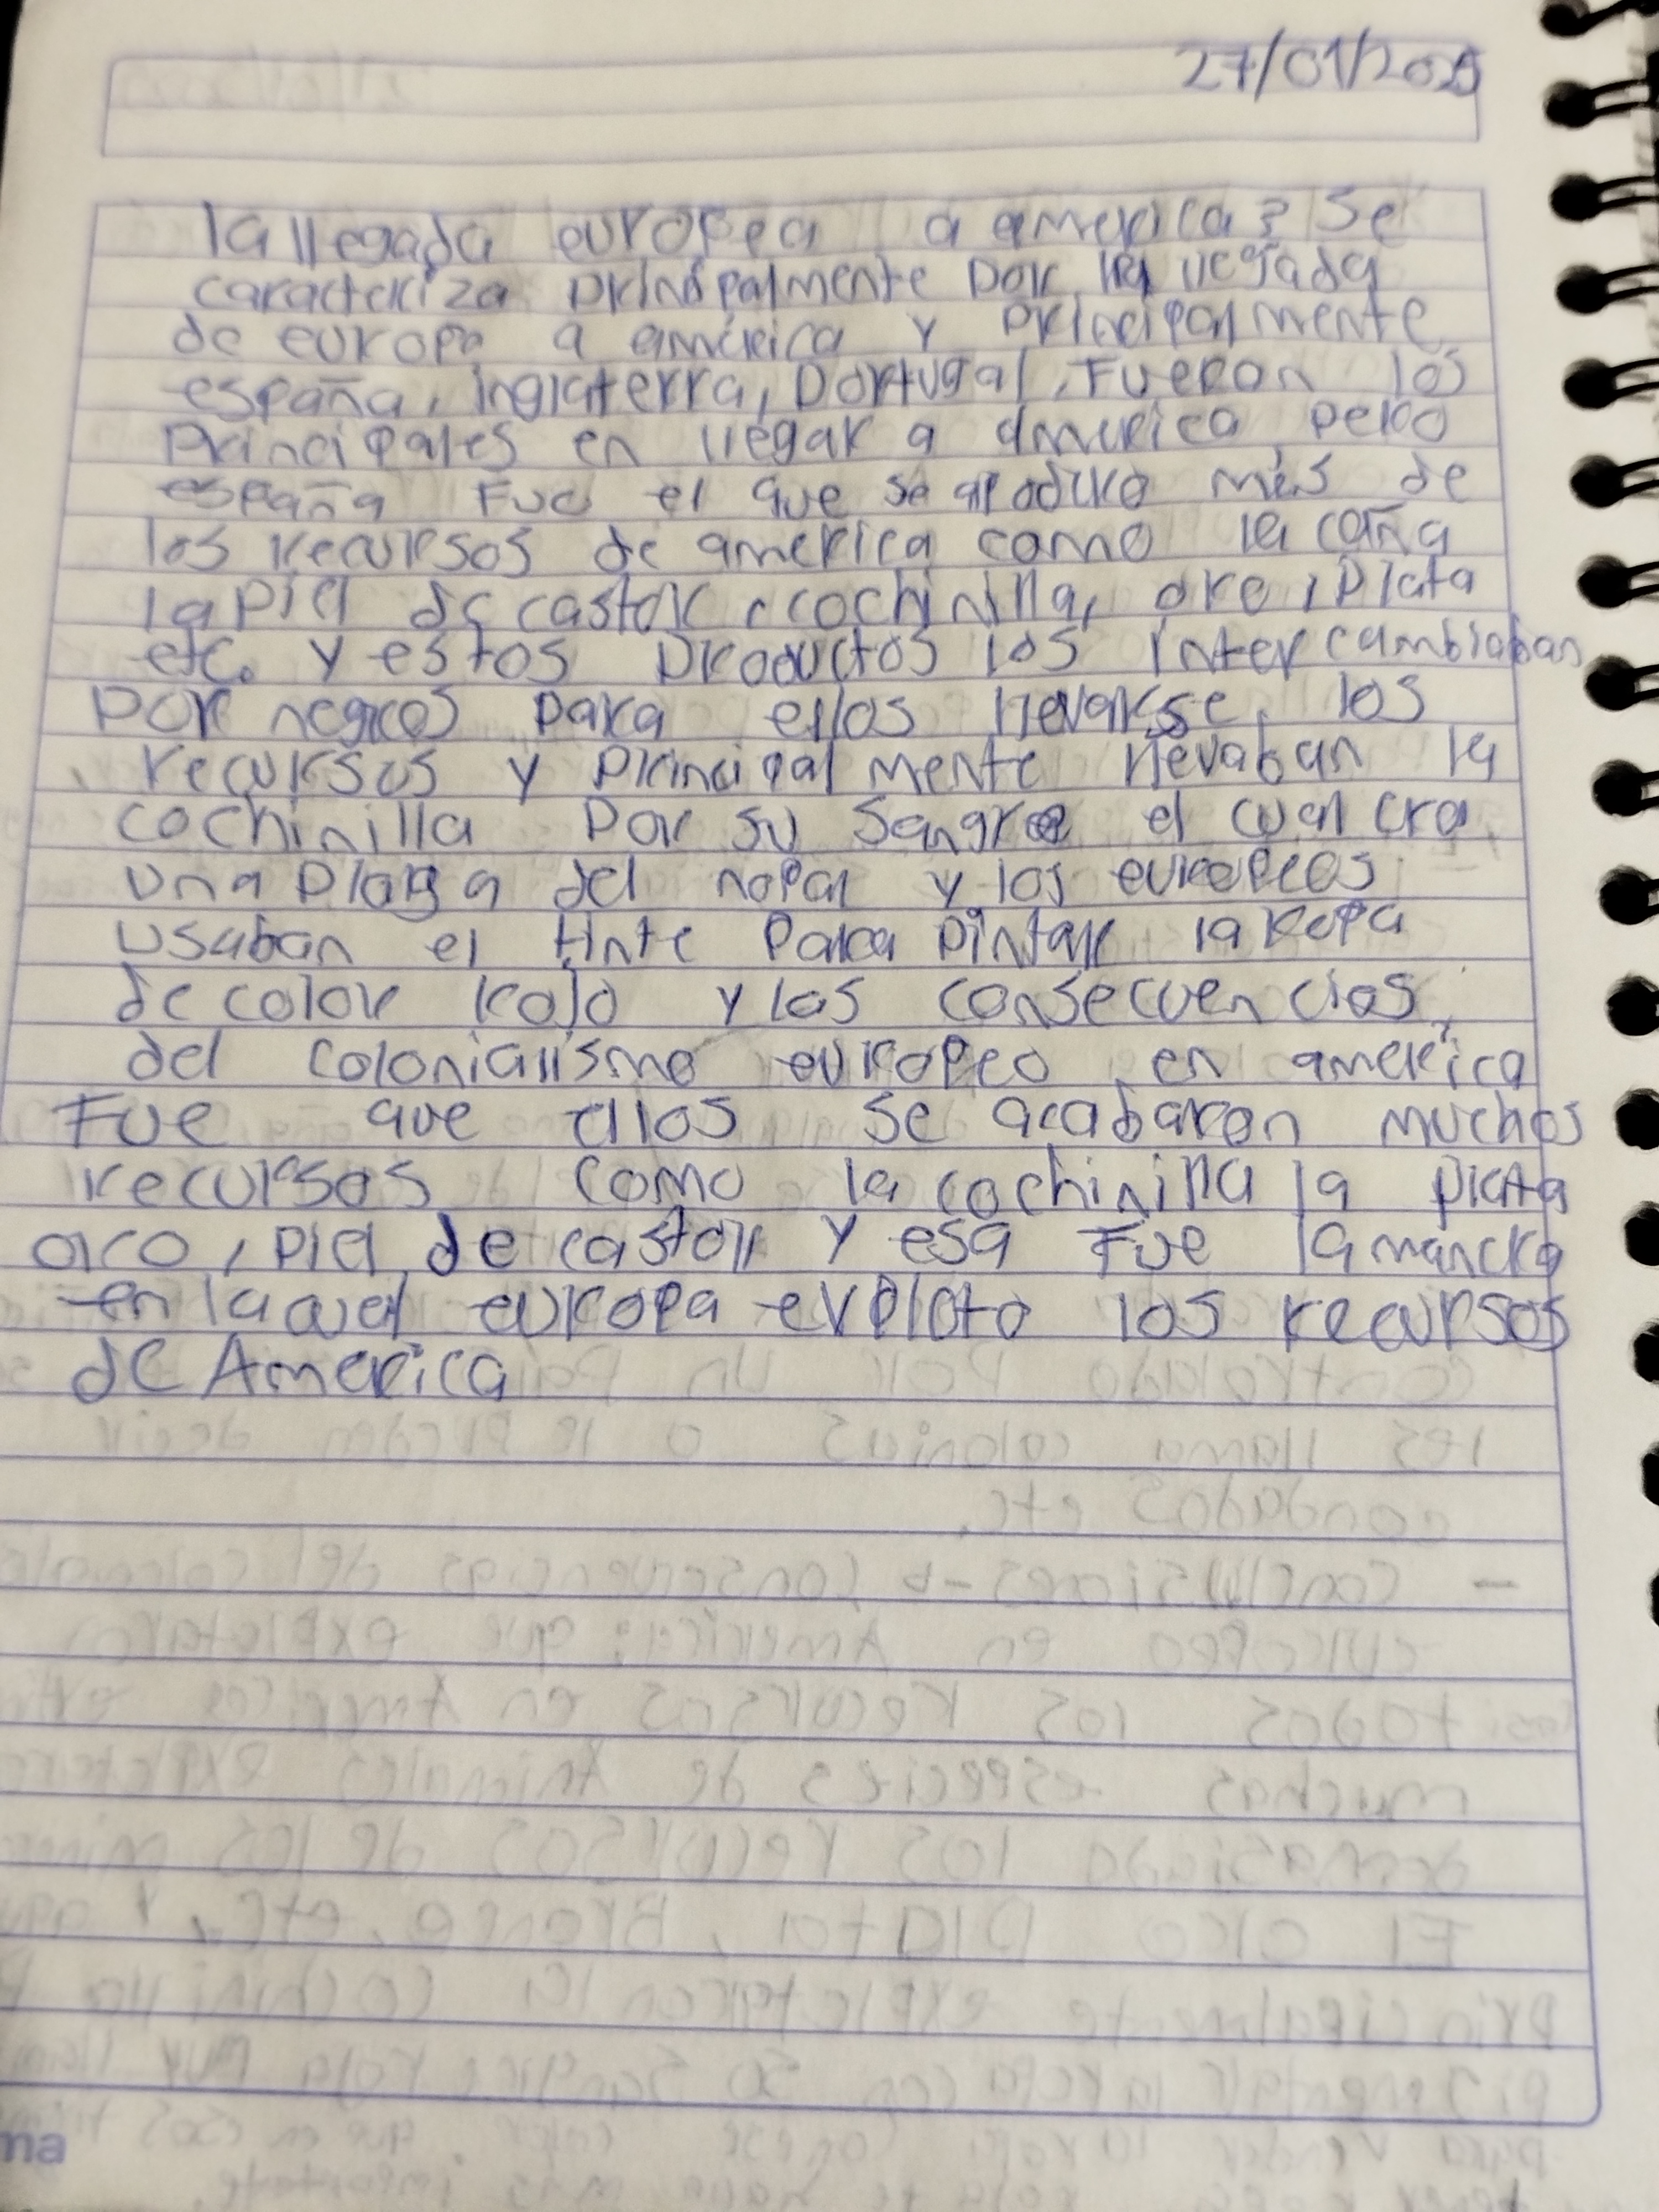 27/01/2025
la llegada europea a america? Se
caracteriza prinspalmente por la llegada
de europa a américa y principalmente
españa, inglaterra, portugal, Fueron los
Principales en llegar a america, pero
españa Fue el que se apodero más de
los recursos de america como la caña
la piel de castor, cochinilla, oro, plata
etc. y estos productos los intercambiaban
por negros para ellos llevarse los
recursos y principalmente llevaban la
cochinilla por su sangre el cual era
una plaga del nopal y los europeos
usaban el tinte para pintar la ropa
de color rojo y las consecuencias
del colonialismo europeo en america
Fue que ellos se acabaron muchos
recursos como la cochinilla la plata
oro, piel de castor y esa Fue la manera
en la cual europa exploto los recursos
de America